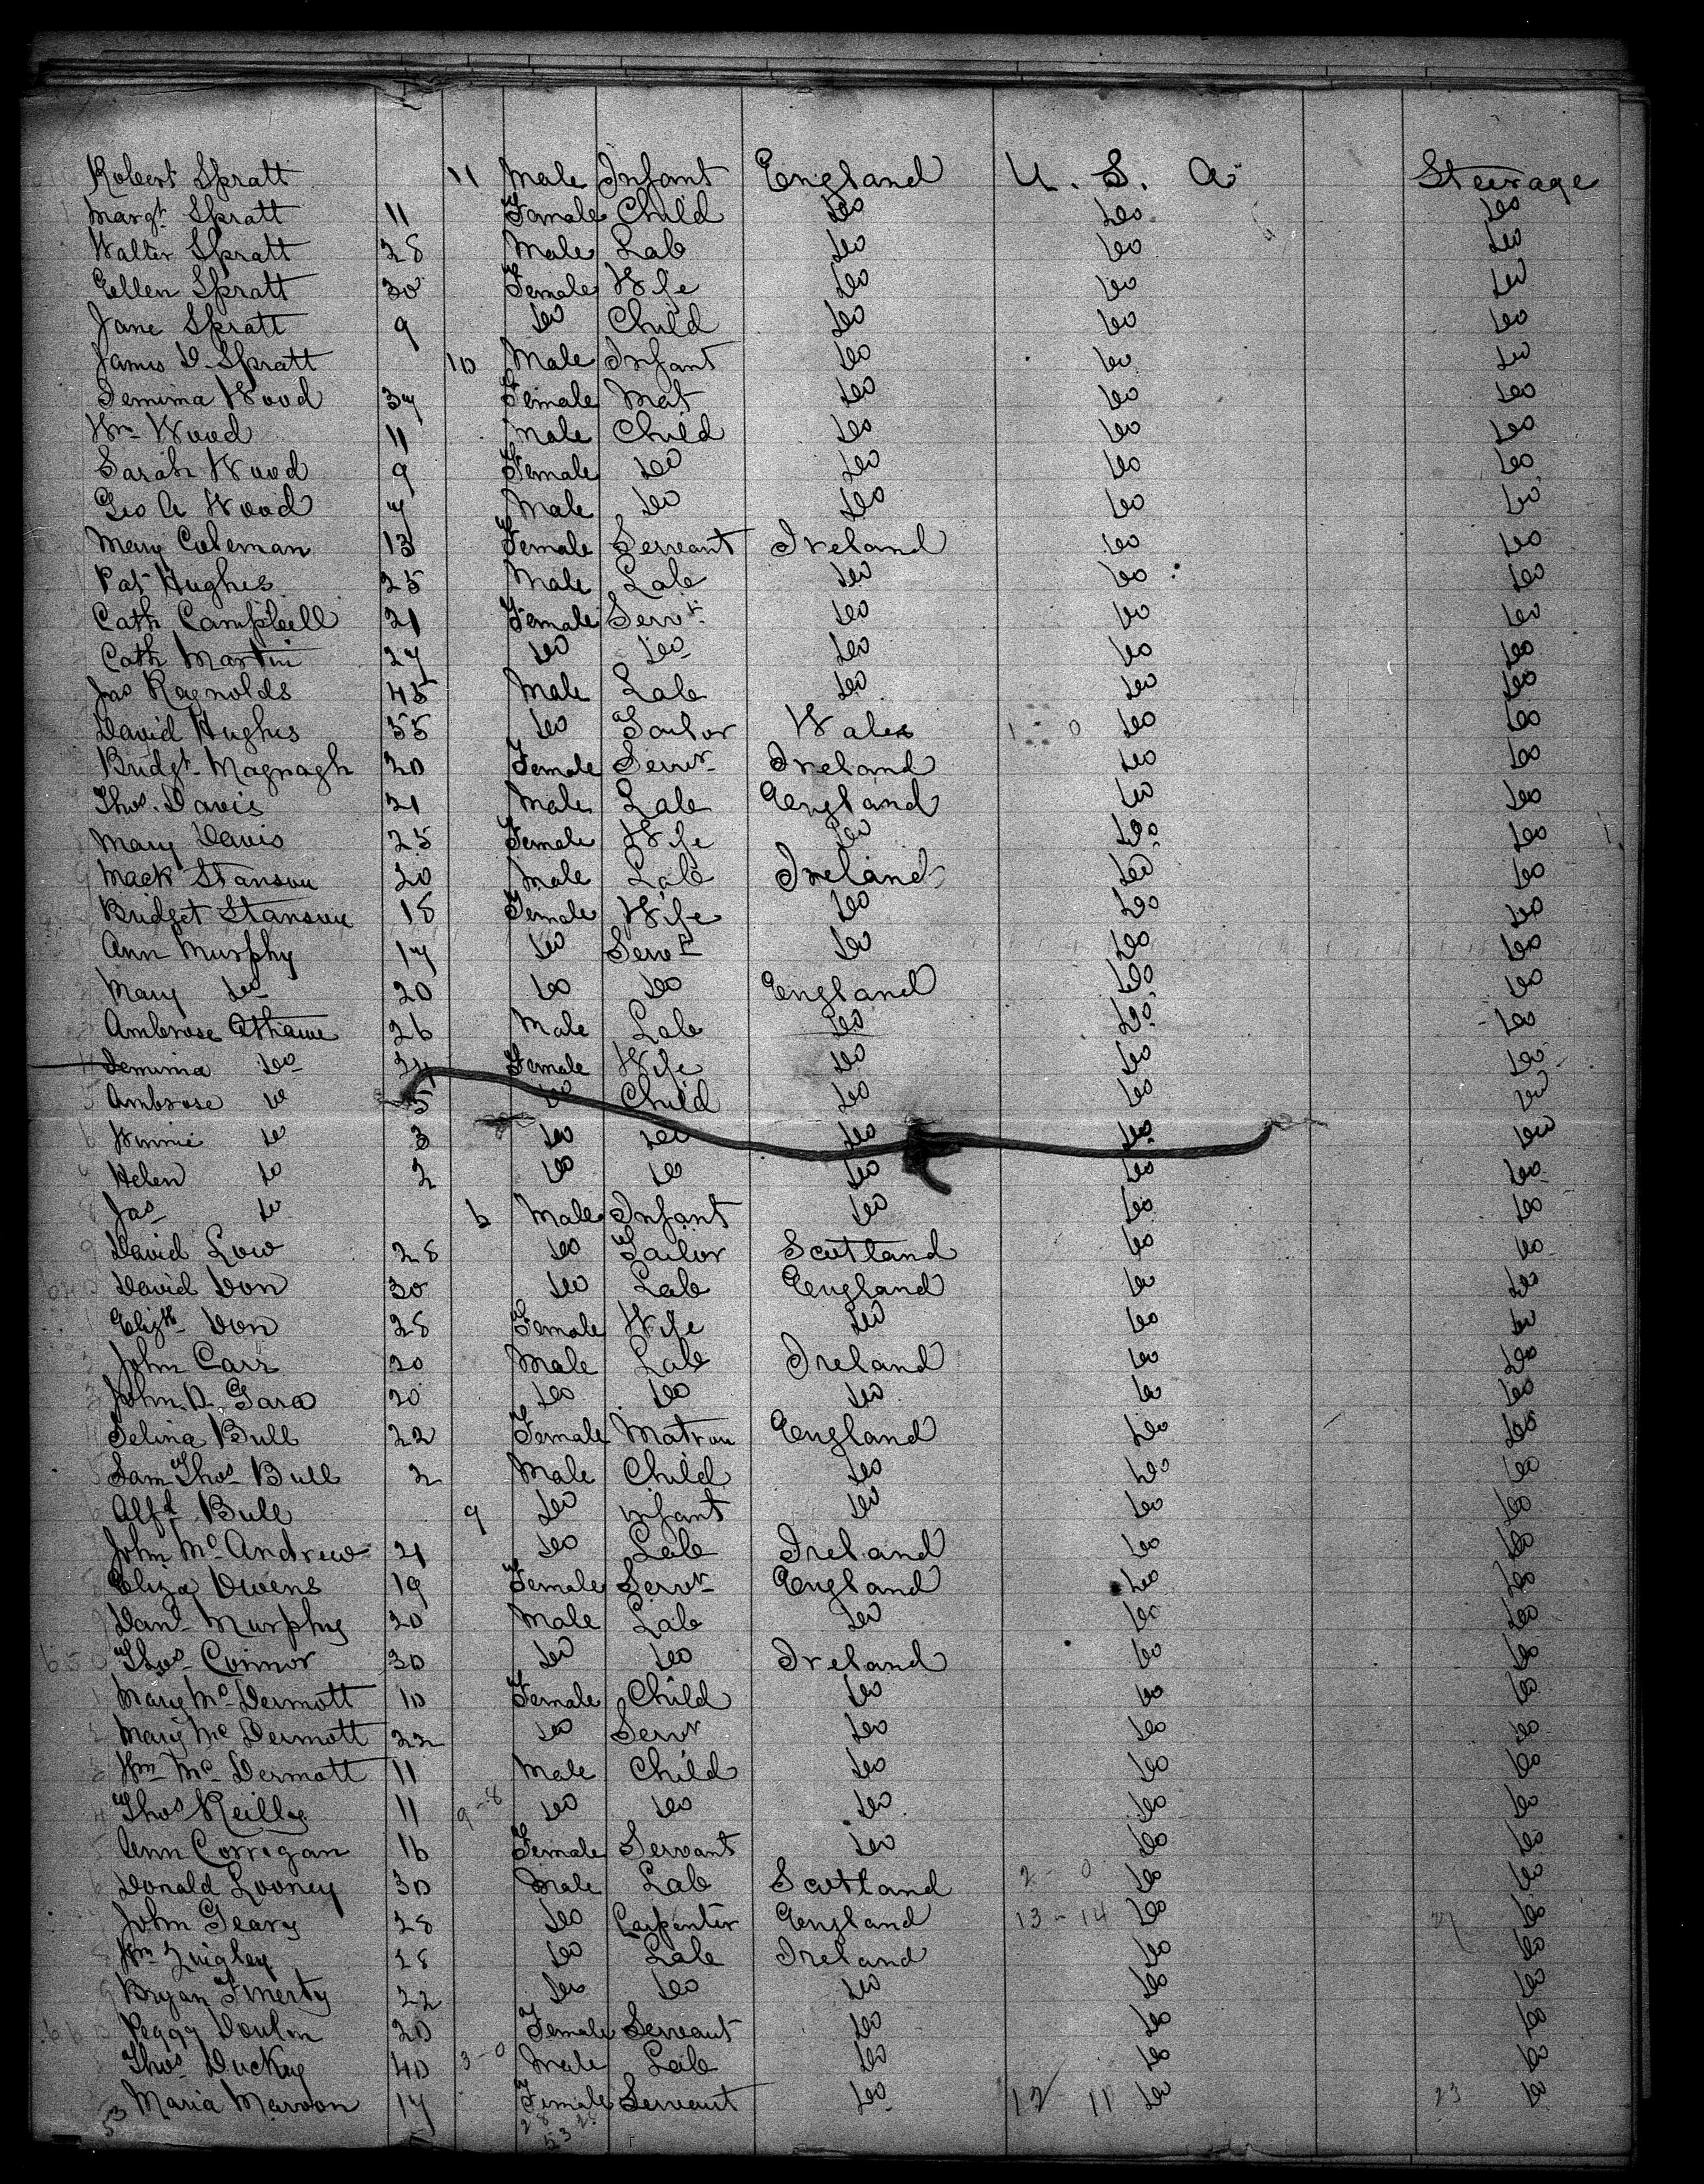 Robert Spratt 11 Male Infant England U. S. A Steerage
Margt Spratt 11 Female Child Do Do Do
Walter Spratt 28 Male Lab Do Do Do
Ellen Spratt 30 Female Wife Do Do Do
Jane Spratt 9 Do Child Do Do Do
James D. Spratt 10 Male Infant Do Do Do
Jemima Wood 37 Female Mat Do Do Do
Wm Wood 11 Male Child Do Do Do
Sarah Wood 9 Female Do Do Do Do
Geo A Wood 7 Male Do Do Do Do
Mary Coleman 13 Female Servant Ireland Do Do
Pat Hughes 25 Male Lab Do Do Do
Cath Campbell 21 Female Servt Do Do Do
Cath Martin 27 Do Do Do Do Do
Jno Reynolds 45 Male Lab Do Do Do
David Hughes 55 Do Tailor Wales 1 0 Do Do
Bridgt Magnagh 20 Female Servt Ireland Do Do
Thos. Davis 21 Male Lab England Do Do
Mary Davis 25 Female Wife Do Do Do
Mack Stanson 20 Male Lab Ireland Do Do
Bridget Stanson 18 Female Wife Do Do Do
Ann Murphy 17 Do Servt Do Do Do
Mary Do 20 Do Do England Do Do
Ambrose 26 Male Lab Do Do Do
Jemima Do 24 Female Wife Do Do Do
Ambrose Do 5 Do Child Do Do Do
Winnie Do 3 Do Do Do Do Do
Helen Do 2 Do Do Do Do Do
Jas Do 6 Male Infant Do Do Do
David Low 28 Do Tailor Scotland Do Do
640 David Don 30 Do Lab England Do Do
Elizth Don 28 Female Wife Do Do Do
John Carr 20 Male Lab Ireland Do Do
John D. Gara 20 Do Do Do Do Do
Selina Bull 22 Female Matron England Do Do
Sam Thos Bull 2 Male Child Do Do Do
Alfd Bull 9 Do infant Do Do Do
John McAndrew 21 Do Lab Ireland Do Do
Eliza Owens 19 Female Servt England Do Do
Danl Murphy 20 Male Lab Do Do Do
650 Thos Connor 30 Do Do Ireland Do Do
Mary McDermott 10 Female Child Do Do Do
Mary McDermott 22 Do Servt Do Do Do
Wm McDermott 11 Male Child Do Do Do
Thos Reilly 11 9-8 Do Do Do Do Do
Ann Corrigan 16 Female Servant Do Do Do
Donald Looney 30 Male Lab Scotland 2-0 Do Do
John Geary 28 Do Carpenter England 13-14 Do 27 Do
Wm Quigley 28 Do Lab Ireland Do Do
Bryan Finerty 22 Do Do Do Do Do
660 Peggy Doulin 20 Female Servant Do Do Do
Thos Duckey 40 3-0 Male Lab Do Do Do
Maria Marvon 17 Female Servant Do 12 11 Do 23 Do
53 28 25
53